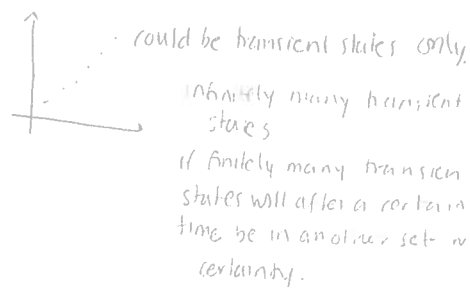 could be transient states only.
infinitely many transient
states
if finitely many transien
states will after a certain
time be in another set w
certainty.